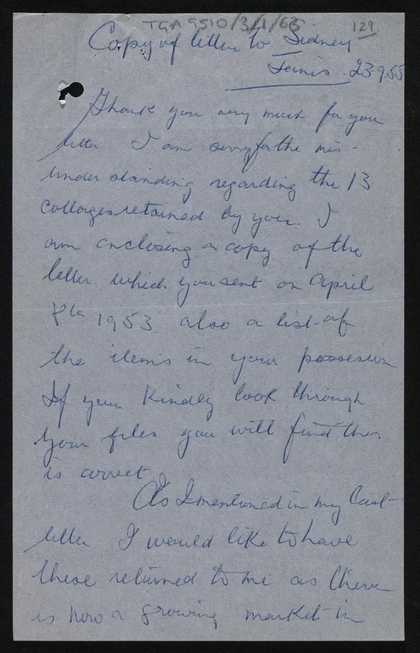 TGA 9510/3/1/65
129
Copy of letter to Sidney
Janis. 23.9.55
Thank you very much for your
letter I am sorry for the mis-
understanding regarding the 13
collages retained by you. I
am enclosing a copy of the
letter which you sent on April
8th 1953 also a list of
the items in your possession
If you kindly look through
your files you will find this
is correct
As I mentioned in my last
letter I would like to have
these returned to me as there
is now a growing market in